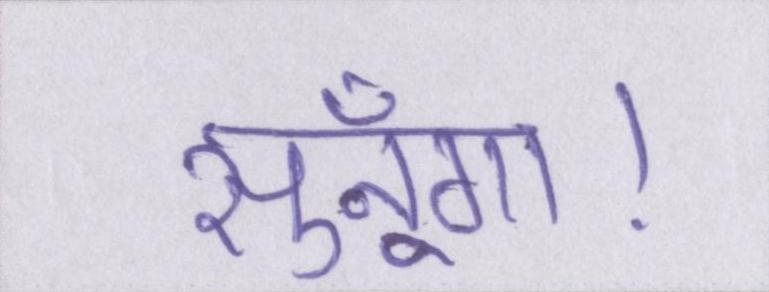 सुनूँगा!